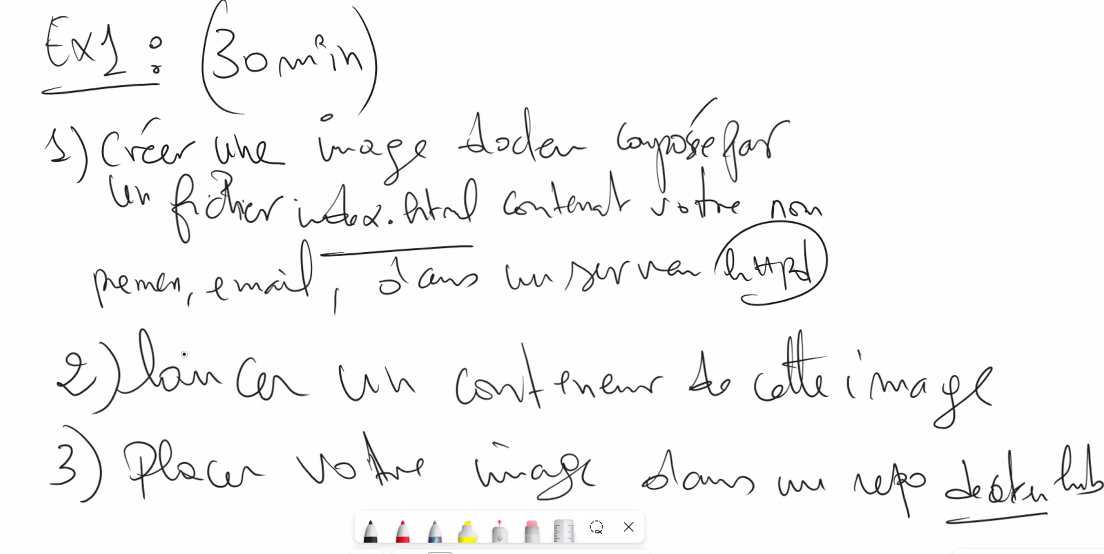 Ex1 : (30 min)
1) Créer une image docker composée par
un fichier index.html contenat votre nom
prenom, email, dans un serveur httpd
2) lancer un conteneur de cette image
3) Placer votre image dans un repo docker hub